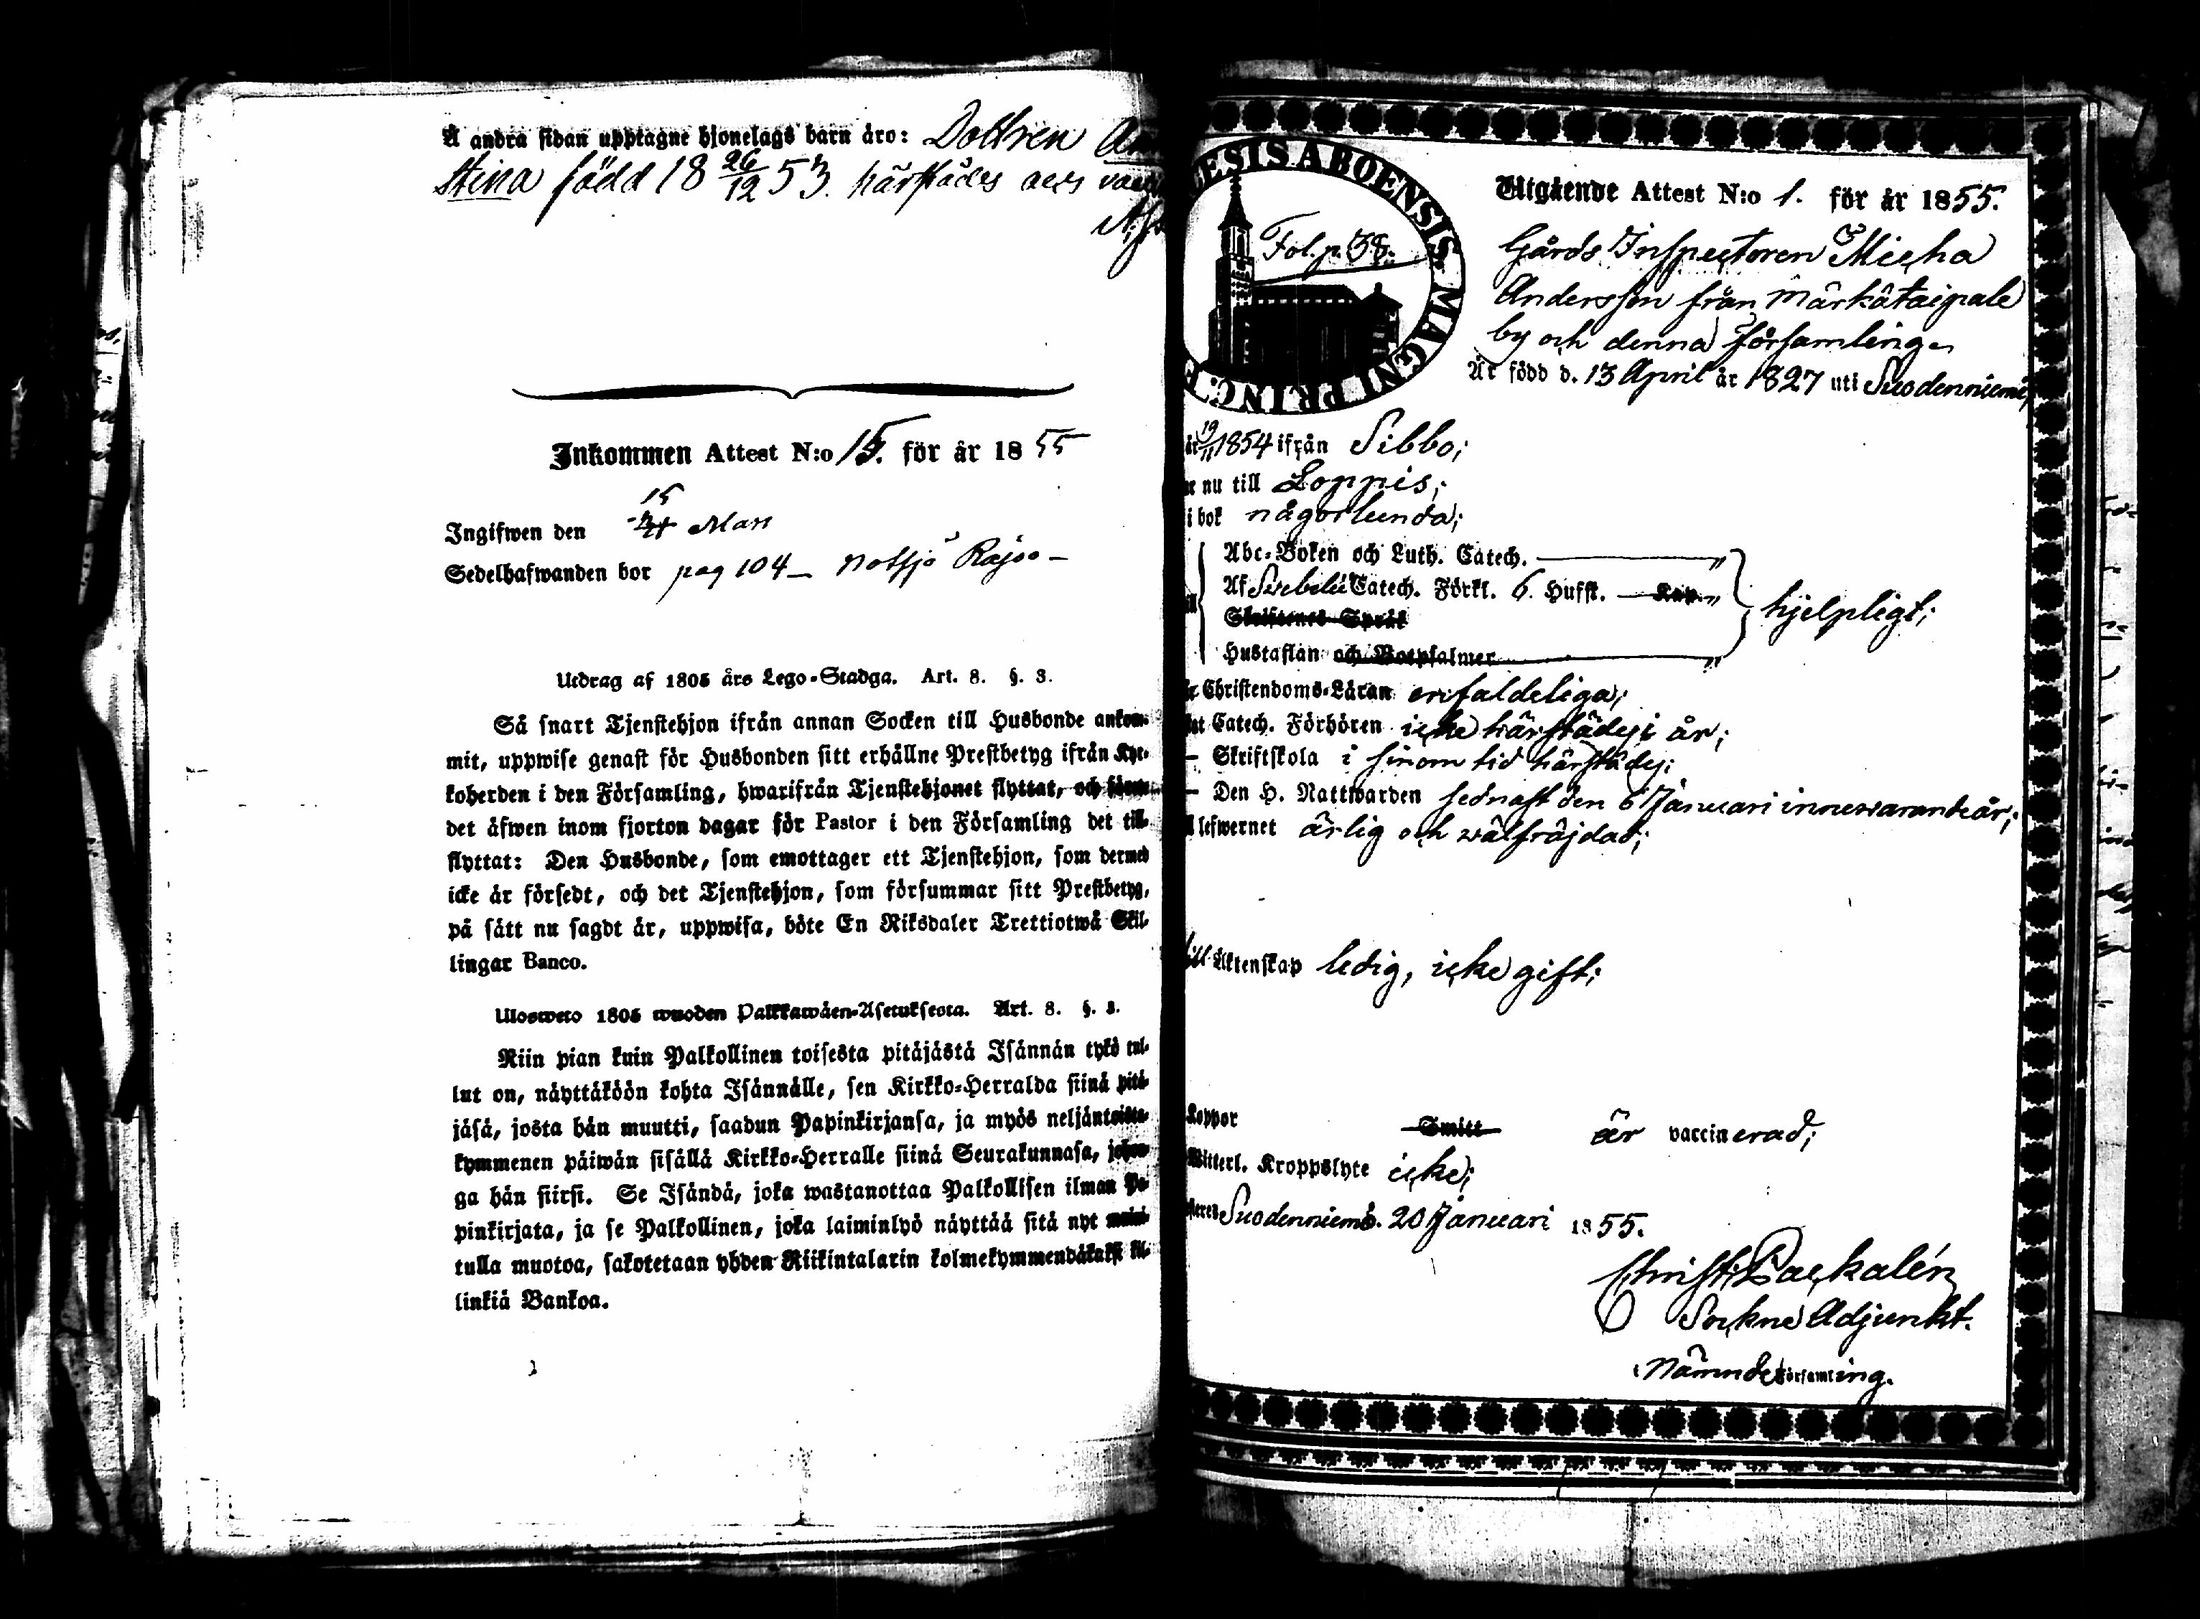 Å andra sidan upptagne hjonelags barn äro: Dottren
Stina född 18 26/12 53. härstädes
Inkommen Attest N:o 15. för år 1855
15
Ingifwen den Mars
Sedelhafwanden bor pag 104 — Notsjö Rajoo —
Utdrag af 1805 års Lego-Stadga. Art. 8. §. 3.
Så snart Tjenstehjon ifrån annan Socken till Husbonde ankom-
mit, uppwise genast för Husbonden sitt erhållne Prestbetyg ifrån Kyr-
koherden i den Församling, hwarifrån Tjenstehjonet flyttat, och
det äfwen inom fjorton dagar för Pastor i den Församling det till-
flyttat: Den Husbonde, som emottager ett Tjenstehjon, som dermed
icke är försedt, och det Tjenstehjon, som försummar sitt Prestbetyg,
på sätt nu sagdt är, uppwisa, böte En Riksdaler Trettiotwå Skil-
lingar Banco.
Ulosweto 1805 wuoden Palkkawäen-Asetuksesta. Art. 8. §. 3.
Niin pian kuin Palkollinen toisesta pitäjästä Isännän tykö tul-
lut on, näyttäköön kohta Isännälle, sen Kirkko-Herralda siinä pitä-
jäsä, josta hän muutti, saadun Papinkirjansa, ja myös neljäntoista-
kymmenen päiwän sisällä Kirkko-Herralle siinä Seurakunnasa, johon-
ga hän siirsi. Se Isändä, joka wastanottaa Palkollisen ilman Pa-
pinkirjata, ja se Palkollinen, joka laiminlyö näyttää sitä nyt maini-
tulla muotoa, sakotetaan yhden Riikintalarin kolmekymmendäkaksi kil-
linkiä Bankoa.
ESIS ABOENSIS MAGNI PRINC.
Fol. p. 38.
Utgående Attest N:o 1. för år 1855.
Gårds Inspectoren Micha
Andersson från Märkätaipale
by och denna församling.
Är född d. 13 April år 1827 uti Suodenniemi,
år 19/11 1854 ifrån Sibbo;
nu till Loppis;
i bok någorlunda;
Abc-Boken och Luth. Catech. — "
Af Svebelii Catech. Förkl. 6. Hufst. — Kap. "
hjelpligt;
Skriftenes Språk
Hustaflan och Botpsalmer "
Christendoms-Läran enfaldeliga;
Catech. Förhören icke härstädes i år;
— Skriftskola i sinom tid härstädes;
— Den H. Nattwarden sednast den 6 Januari innewarande år;
lefwernet ärlig och wälfräjdad;
till Äktenskap ledig, icke gift;
Koppor Smitt är vaccinerad;
Witterl. Kroppslyte icke;
Suodenniemi d. 20 Januari 1855.
Christ. Packalén
Sockne Adjunkt.
Nämnde församling.